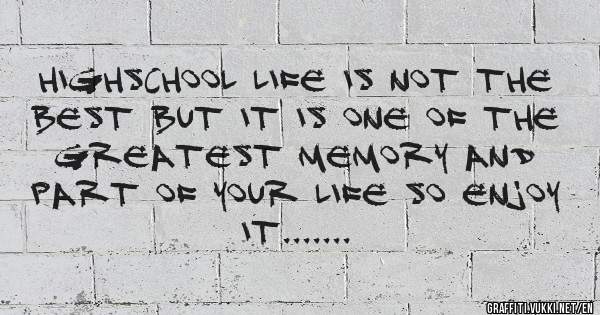 HIGHSCHOOL LIFE IS NOT THE
BEST BUT IT IS ONE OF THE
GREATEST MEMORY AND
PART OF YOUR LIFE SO ENJOY
IT.......
GRAFFITI.VUKKI.NET/EN